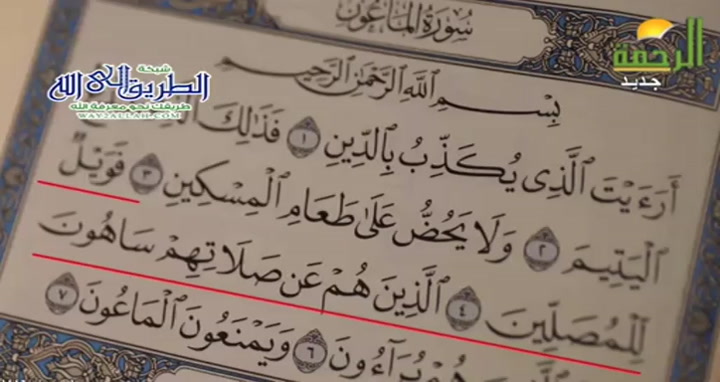 سُورَةُ المَاعُونَ
الرحمة
جديد
شبكة
الطريق إلى الله
طريقك نحو معرفة الله
WAY2ALLAH.COM
بِسْمِ ٱللَّهِ ٱلرَّحْمَٰنِ ٱلرَّحِيمِ
أَرَءَيْتَ ٱلَّذِى يُكَذِّبُ بِٱلدِّينِ ١ فَذَٰلِكَ
ٱلْيَتِيمَ ٢ وَلَا يَحُضُّ عَلَىٰ طَعَامِ ٱلْمِسْكِينِ ٣ فَوَيْلٌ
لِّلْمُصَلِّينَ ٤ ٱلَّذِينَ هُمْ عَن صَلَاتِهِمْ سَاهُونَ
هُمْ يُرَآءُونَ ٦ وَيَمْنَعُونَ ٱلْمَاعُونَ ٧